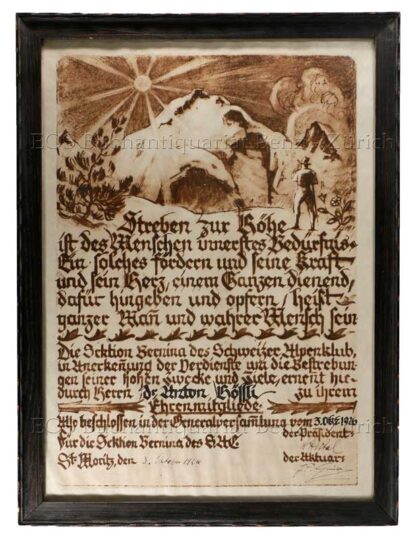 EOS Buchantiquariat Benz, Zürich
Streben zur Höhe
ist des Menschen innerstes Bedürfnis.
Ein solches fördern und seine Kraft
und sein Herz, einem Ganzen dienend,
dafür hingeben und opfern, heißt
ganzer Mañ und wahrer Mensch sein
Die Sektion Bernina des Schweizer Alpenklub,
in Anerkeñung der Verdienste um die Bestrebun
gen seiner hohen Zwecke und Ziele, erneñt hie-
durch Herrn Dr Anton Gössli zu ihrem
Ehrenmitgliede.
Also beschlossen in der Generalversammlung vom 3. Okt 1926
Für die Sektion Bernina des S.A.C. der Präsident:
St. Moritz, den 3. Oktober 1926
der Aktuar: